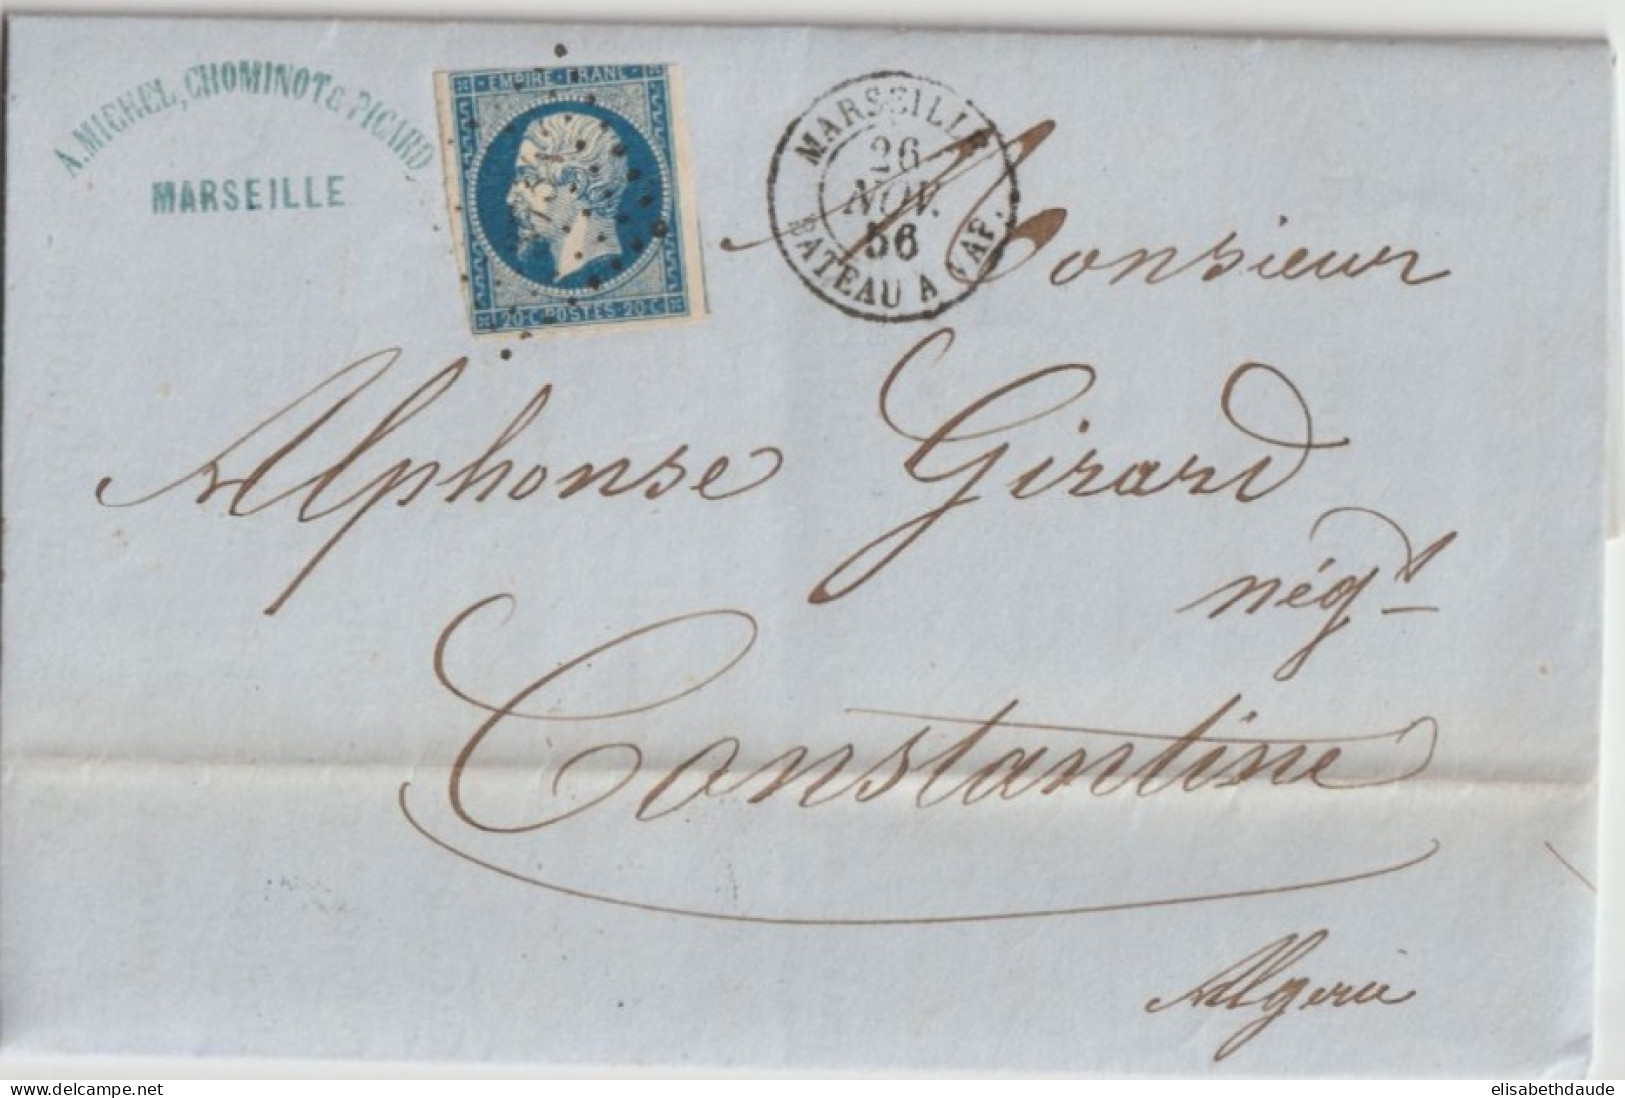 A. MICHEL, CHOMINOT & PICARD.
MARSEILLE
EMPIRE · FRANC
20·C·POSTES·20·C
MARSEILLE
26
NOV.
56
BATEAU A VAP.
Monsieur
Alphonse Girard
négt
Constantine
Algérie
www.delcampe.net
elisabethdaude